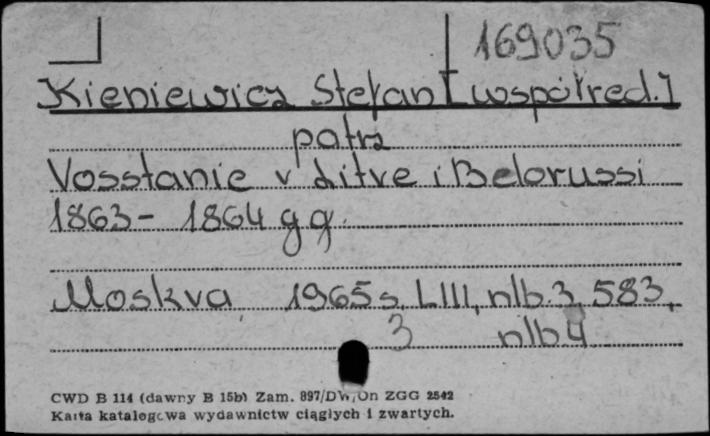 169035
Kieniewicz Stefan [współred.]
patrz
Vosstanie v Litve i Belorussi
1863-1864 gg.
Moskva, 1965 s. LIII, nlb. 3, 583,
3 nlb 4
CWD B 114 (dawny B 15b) Zam. 897/DW/On ZGG 2542
Karta katalogowa wydawnictw ciągłych i zwartych.